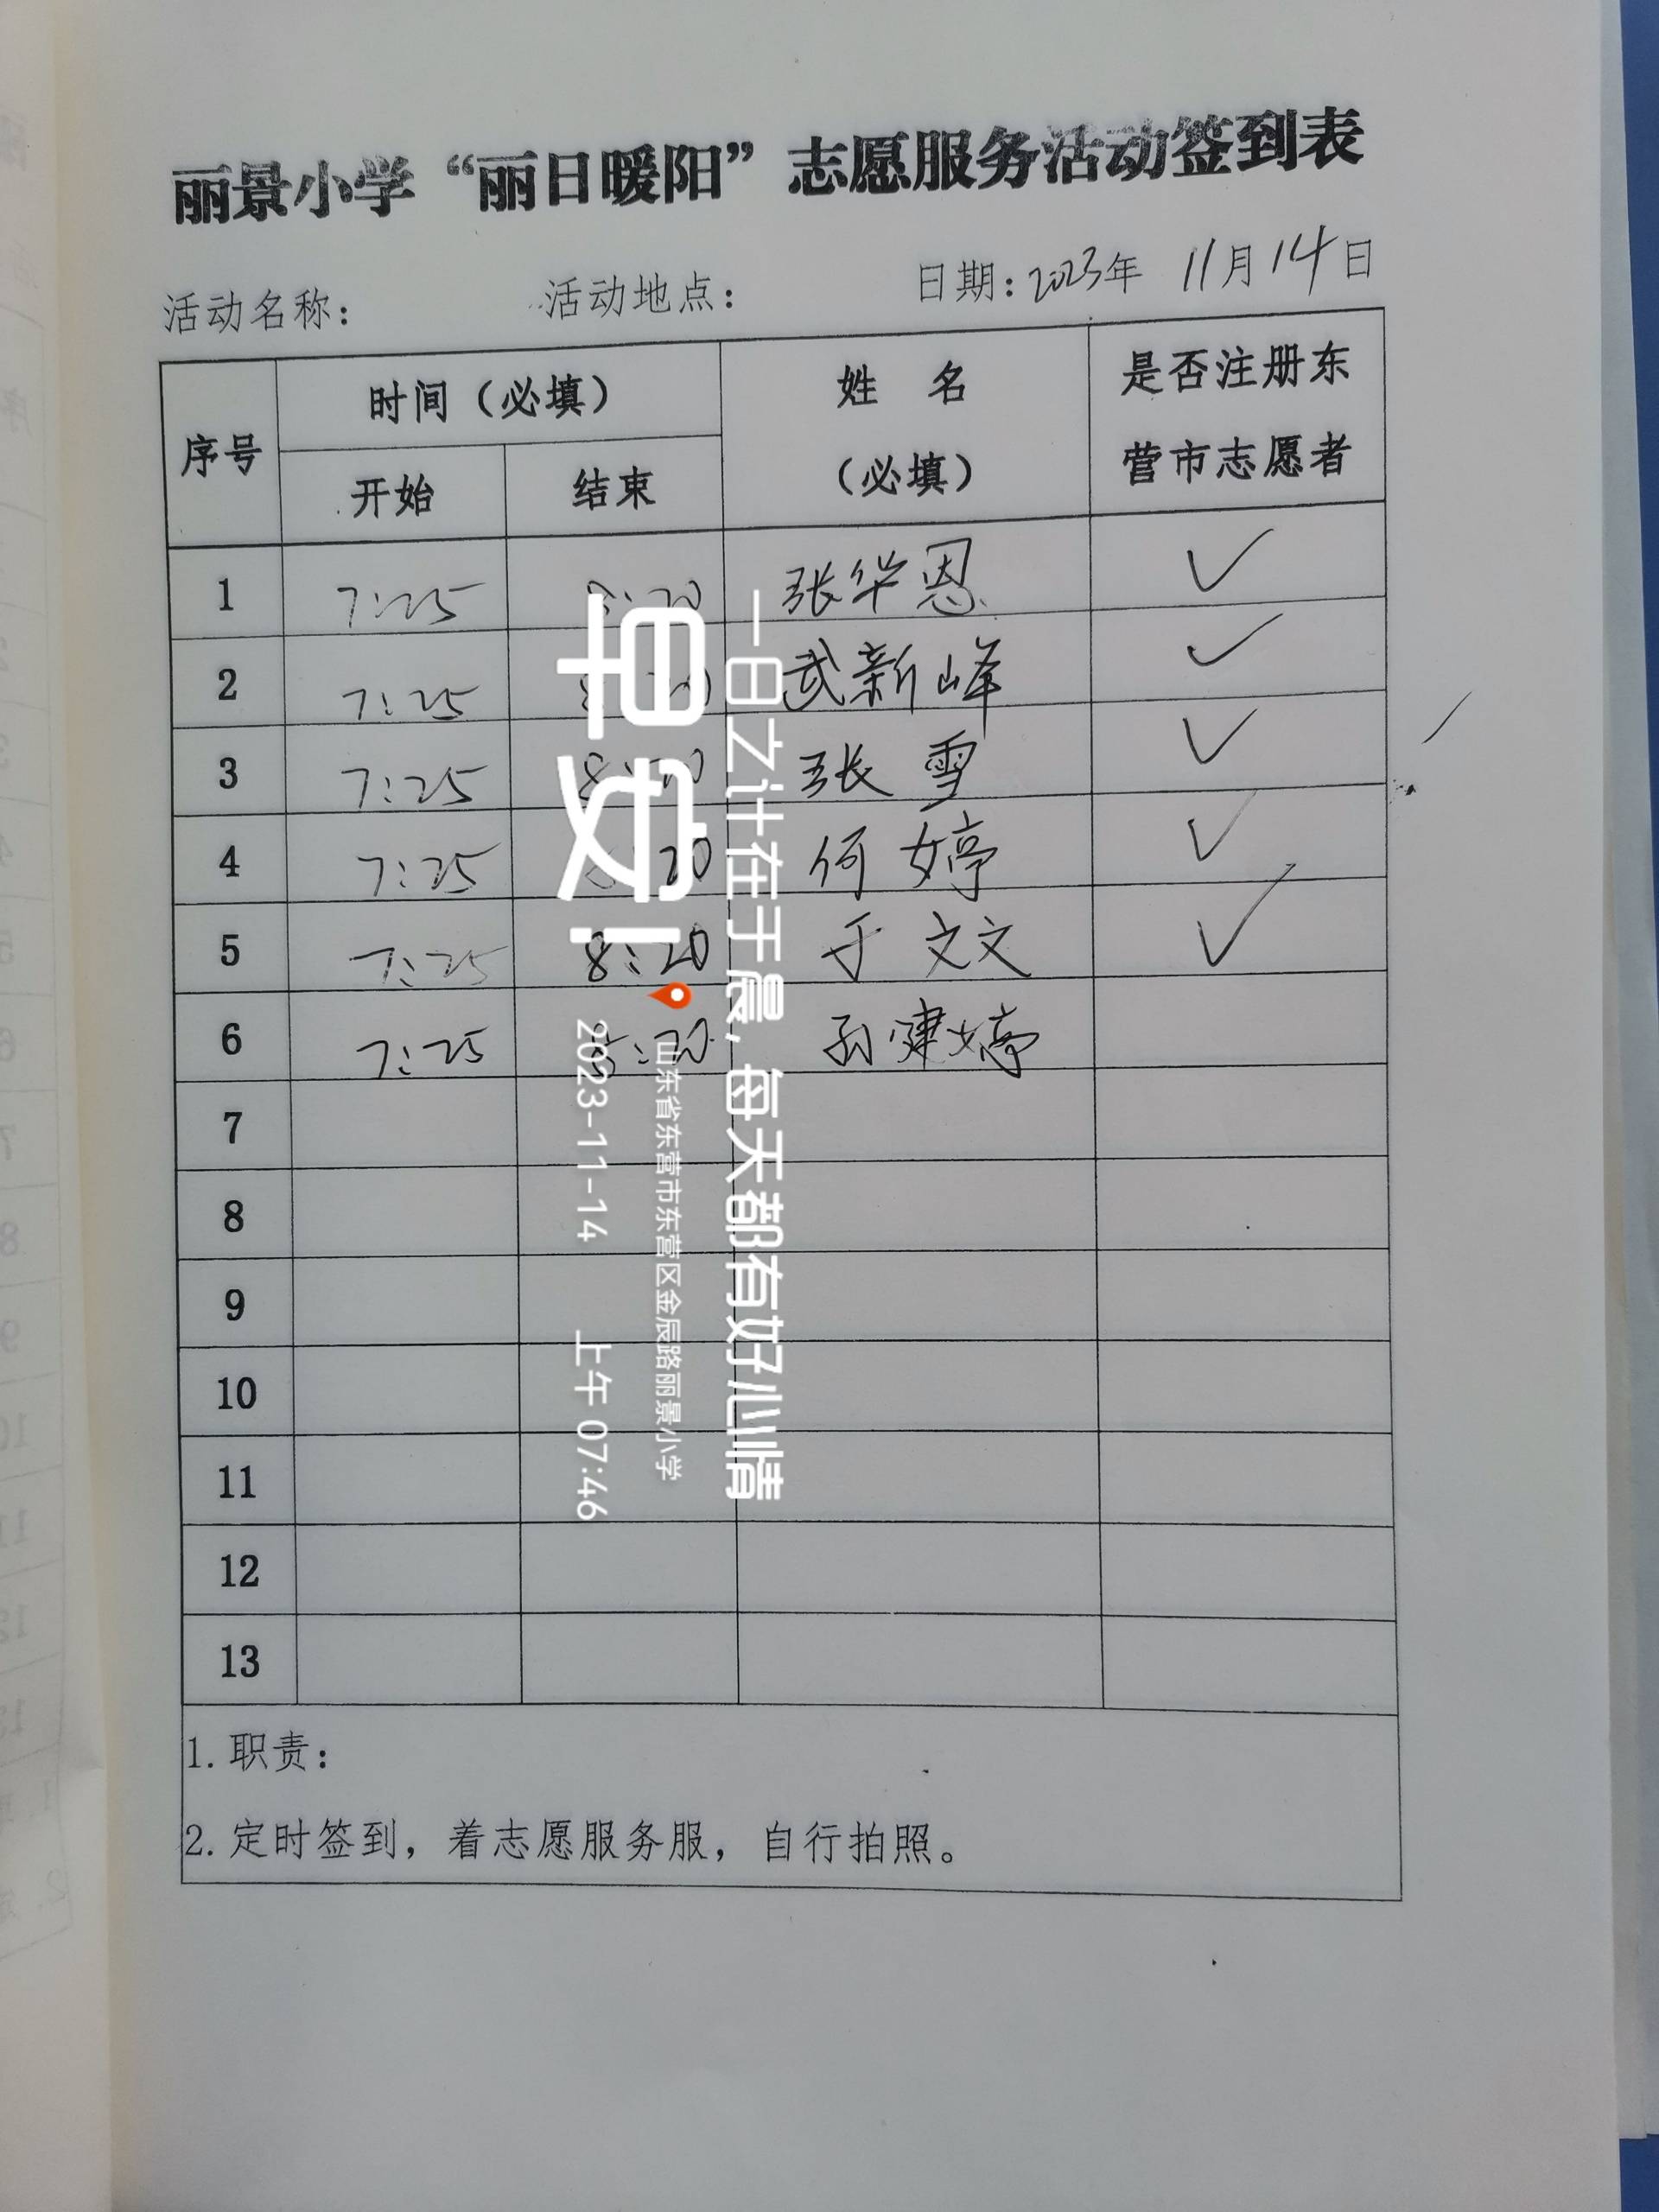 丽景小学“丽日暖阳”志愿服务活动签到表
活动名称： 活动地点： 日期：2023年 11月14日
序号 时间（必填） 姓 名（必填） 是否注册东营市志愿者
开始 结束
1 7:25 8:20 张华恩 ✓
2 7:25 武新峰 ✓
3 7:25 8:20 张雪 ✓
4 7:25 8:20 何婷 ✓
5 7:25 8:20 于文文 ✓
6 7:25 8:20 孙建婷
7
8
9
10
11
12
13
1. 职责：
2. 定时签到，着志愿服务服，自行拍照。
一日之计在于晨，每天都有好心情
早安！
山东省东营市东营区金辰路丽景小学
2023-11-14 上午 07:46